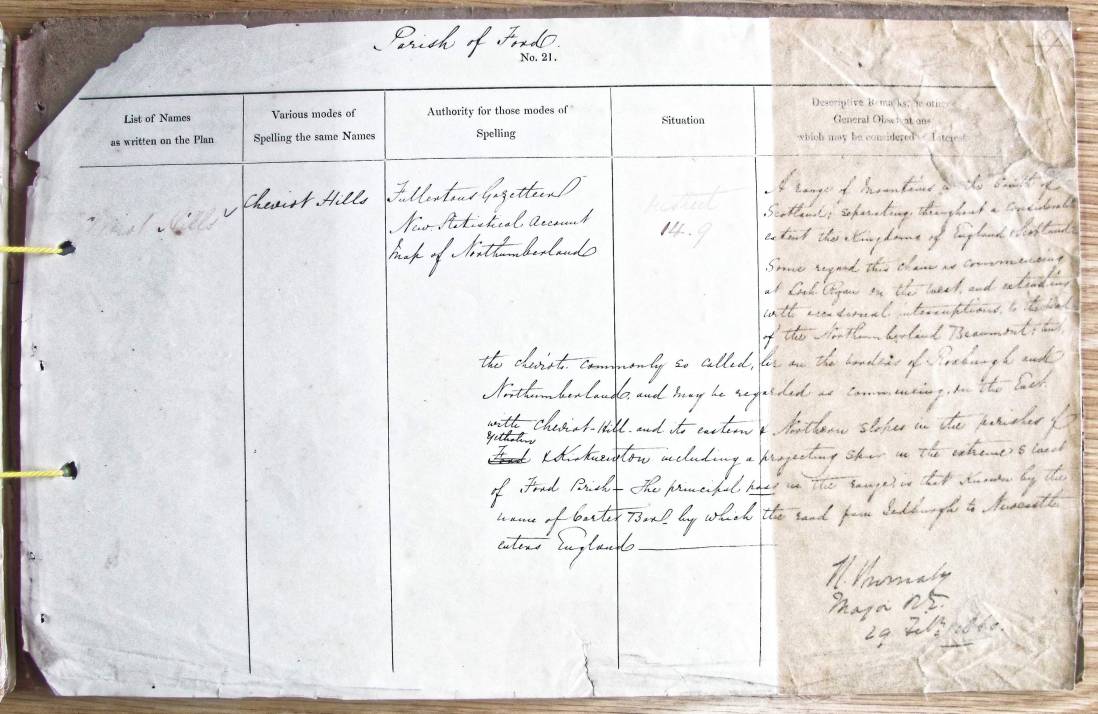 Parish of Ford.
No. 21.
List of Names
as written on the Plan
Various modes of
Spelling the same Names
Authority for those modes of
Spelling
Situation
Descriptive Remarks, or other
General Observations
which may be considered of Interest
Cheviot Hills
Cheviot Hills
Fullertons Gazetteer
New Statistical Account
Map of Northumberland
District
14.9
A range of Mountains in the South of
Scotland; separating, throughout a considerable
extent the Kingdoms of England & Scotland.
Some regard this chain as commencing
at Loch Ryan on the west, and extending
with occasional interruptions, to the
of the Northumberland Beaumont; but,
the cheviots commonly so called, lie on the borders of Roxburgh and
Northumberland, and may be regarded as commencing, on the East,
with Cheviot-Hill and its eastern & Northern slopes in the parishes of
Yetholm
Ford & Kirknewton including a projecting spur in the extreme S West
of Ford Prish - The principal pass in the range is that known by the
name of Carter Bar, by which the road from Jedburgh to Newcastle
enters England
Major R.E.
29 Feby 1860.